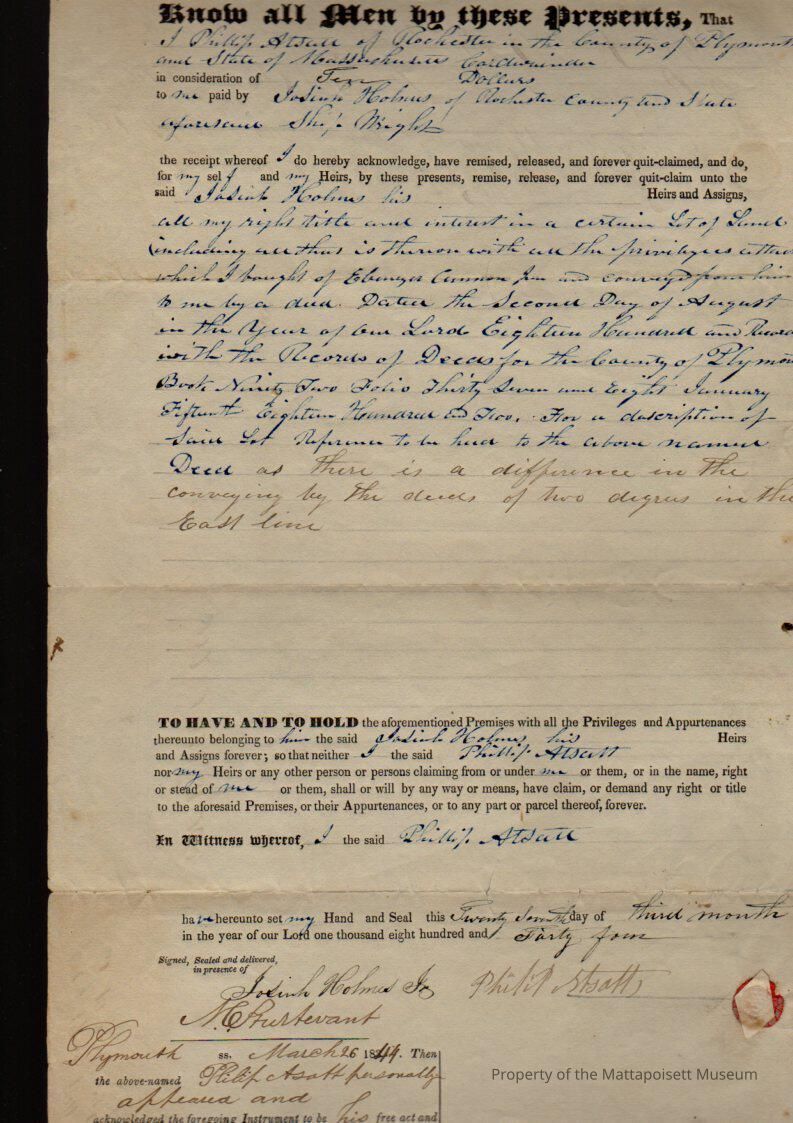 Know all Men by these Presents, That
I Phillip Atsatt of Rochester in the County of Plymouth
and State of Massachusetts Cordwainder
in consideration of Ten Dollars
to me paid by Josiah Holmes of Rochester County and State
aforesaid Ship Wright
the receipt whereof I do hereby acknowledge, have remised, released, and forever quit-claimed, and do,
for my self and my Heirs, by these presents, remise, release, and forever quit-claim unto the
said Josiah Holmes his Heirs and Assigns,
all my right title and interest in a certain Lot of Land
(including all that is thereon with all the privileges
which I bought of Ebenezer Cannon Jun and conveyed from him
to me by a deed. Dated the Second Day of August
in the Year of Our Lord Eighteen Hundred and
with the Records of Deeds for the County of Plymou
Book Ninety Two Folio Thirty Seven and Eight January
Fifteenth Eighteen Hundred and Two. For a description of
said Lot Reference to be had to the above named
Deed as there is a difference in the
conveying by the deeds of two degrees in the
East line
TO HAVE AND TO HOLD the aforementioned Premises with all the Privileges and Appurtenances
thereunto belonging to him the said Josiah Holmes his Heirs
and Assigns forever; so that neither I the said Phillip Atsatt
nor my Heirs or any other person or persons claiming from or under me or them, or in the name, right
or stead of me or them, shall or will by any way or means, have claim, or demand any right or title
to the aforesaid Premises, or their Appurtenances, or to any part or parcel thereof, forever.
In Witness whereof, I the said Phillip Atsatt
have hereunto set my Hand and Seal this Twenty Seventh day of third month
in the year of our Lord one thousand eight hundred and Forty four
Signed, Sealed and delivered,
in presence of
Josiah Holmes Jr Philip Atsatt
N. C. Sturtevant
Plymouth ss. March 26 1844. Then
the above-named Philip Asatt personally
appeared and
acknowledged the foregoing Instrument to be his free act and
Property of the Mattapoisett Museum